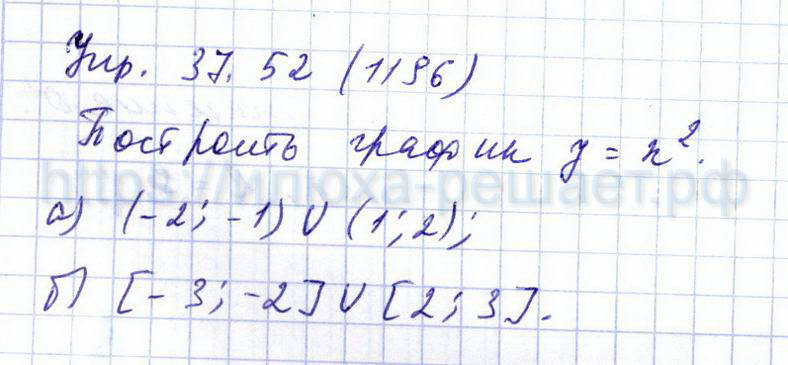 Упр. 37.52 (1196)
Построить график y = x².
https://илюха-решает.рф
а) (-2; -1) ∪ (1; 2);
б) [-3; -2] ∪ [2; 3].